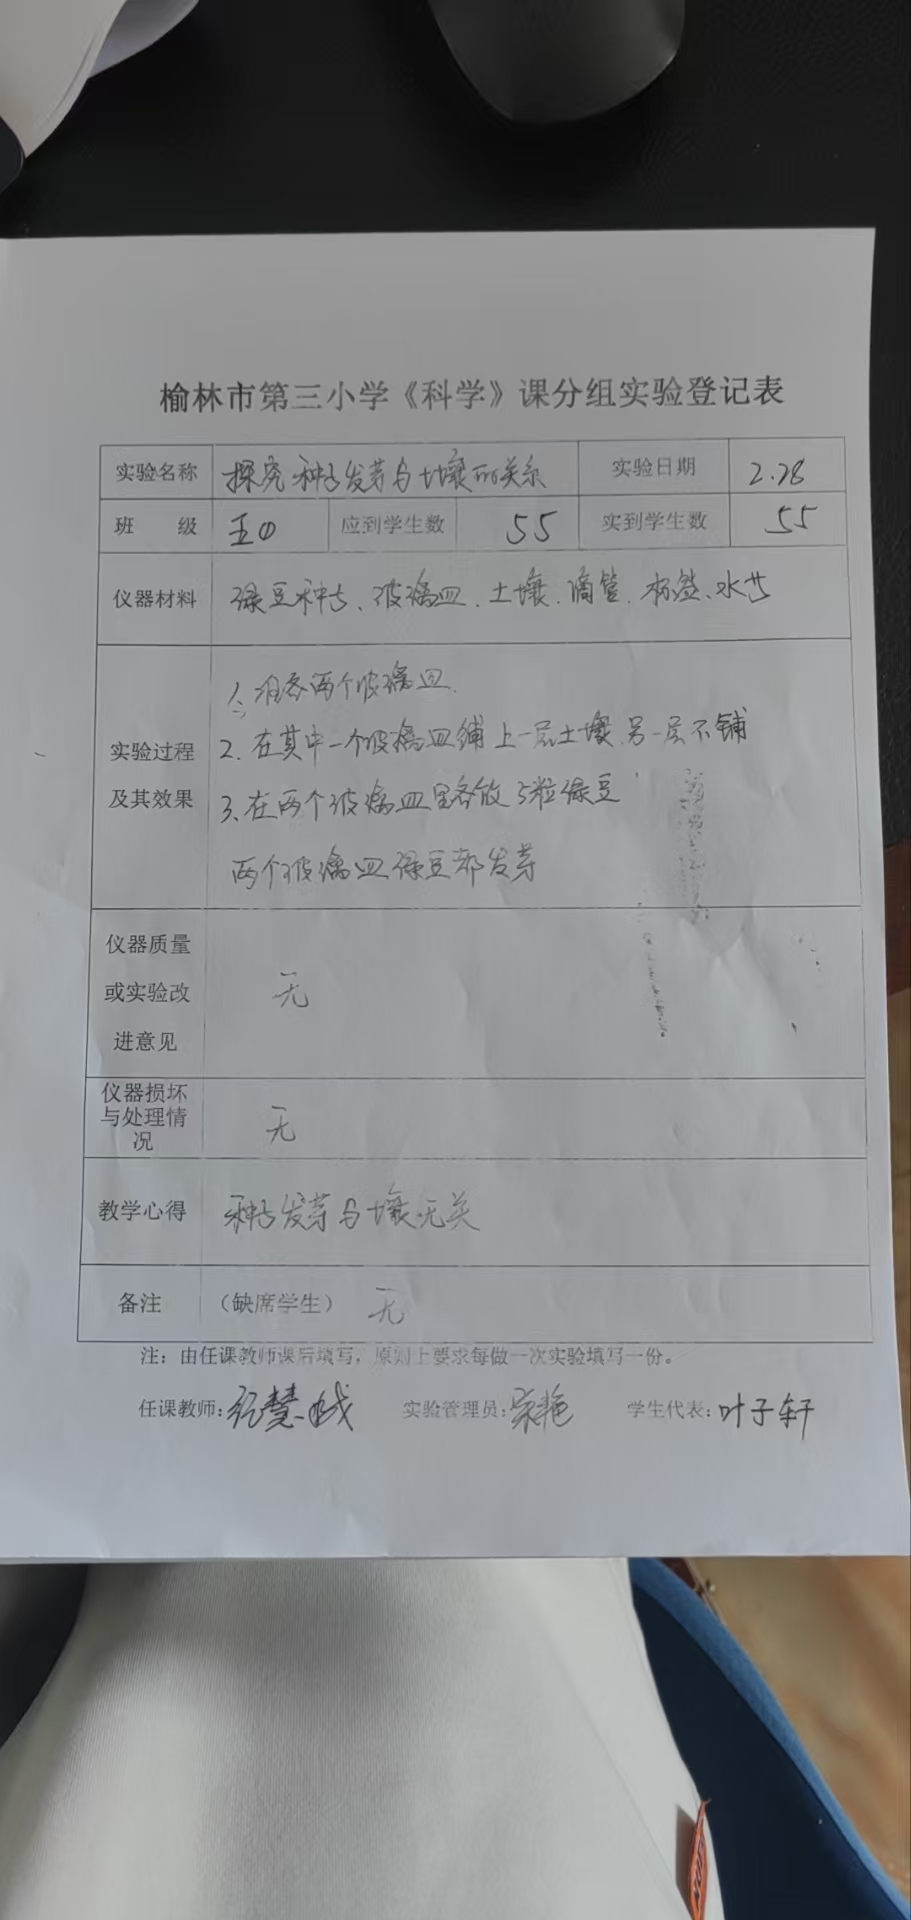 榆林市第三小学《科学》课分组实验登记表
实验名称 探究种子发芽与土壤的关系 实验日期 2.28
班 级 五(1) 应到学生数 55 实到学生数 55
仪器材料 绿豆种子、玻璃皿、土壤、滴管、标签、水等
实验过程及其效果
1、准备两个玻璃皿.
2、在其中一个玻璃皿铺上一层土壤.另一层不铺
3、在两个玻璃皿里各放5粒绿豆
两个玻璃皿绿豆都发芽
仪器质量
或实验改 无
进意见
仪器损坏
与处理情 无
况
教学心得 种子发芽与土壤无关
备注 (缺席学生) 无
注：由任课教师课后填写，原则上要求每做一次实验填写一份。
任课教师: 实验管理员: 学生代表:叶子轩